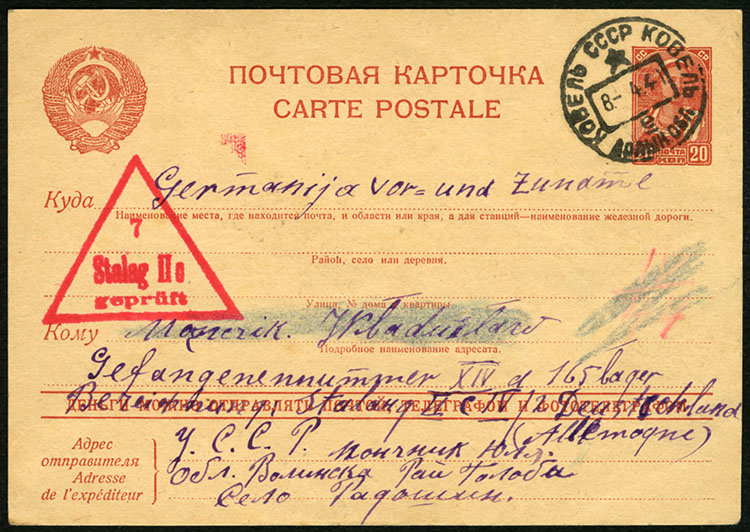 ПОЧТОВАЯ КАРТОЧКА
CARTE POSTALE
КОВЕЛЬ СССР КОВЕЛЬ
8- 4.4
ПОЧТА
20 КОП
Куда Germanija Vor= und Zuname
Наименование места, где находится почта, и области или края, а для станций—наименование железной дороги.
7
Stalag II c
geprüft
Район, село или деревня.
Улица, № дома и квартиры.
Кому Moncrik. Wladuslaw
Подробное наименование адресата.
Gefangenennummer XIV d 165 lager
ДЕНЬГИ МОЖНО ОТПРАВЛЯТЬ ПОЧТОЙ, ТЕЛЕГРАФОМ И ФОТОТЕЛЕГРАФОМ
Bezeichnung, II C Deutschland
(Allemagne)
Адрес
отправителя
Adresse
de l'expéditeur
У. С. С. Р. Мончник Юлл.
Обл. Волинска Рай Голоби
Село Радошин.